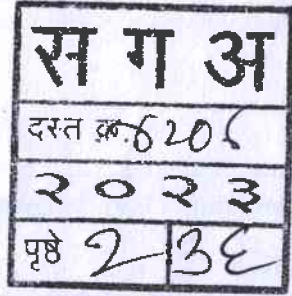 स ग अ
दस्त क्र. 6206
२०२३
पृष्ठे 2 | 3६